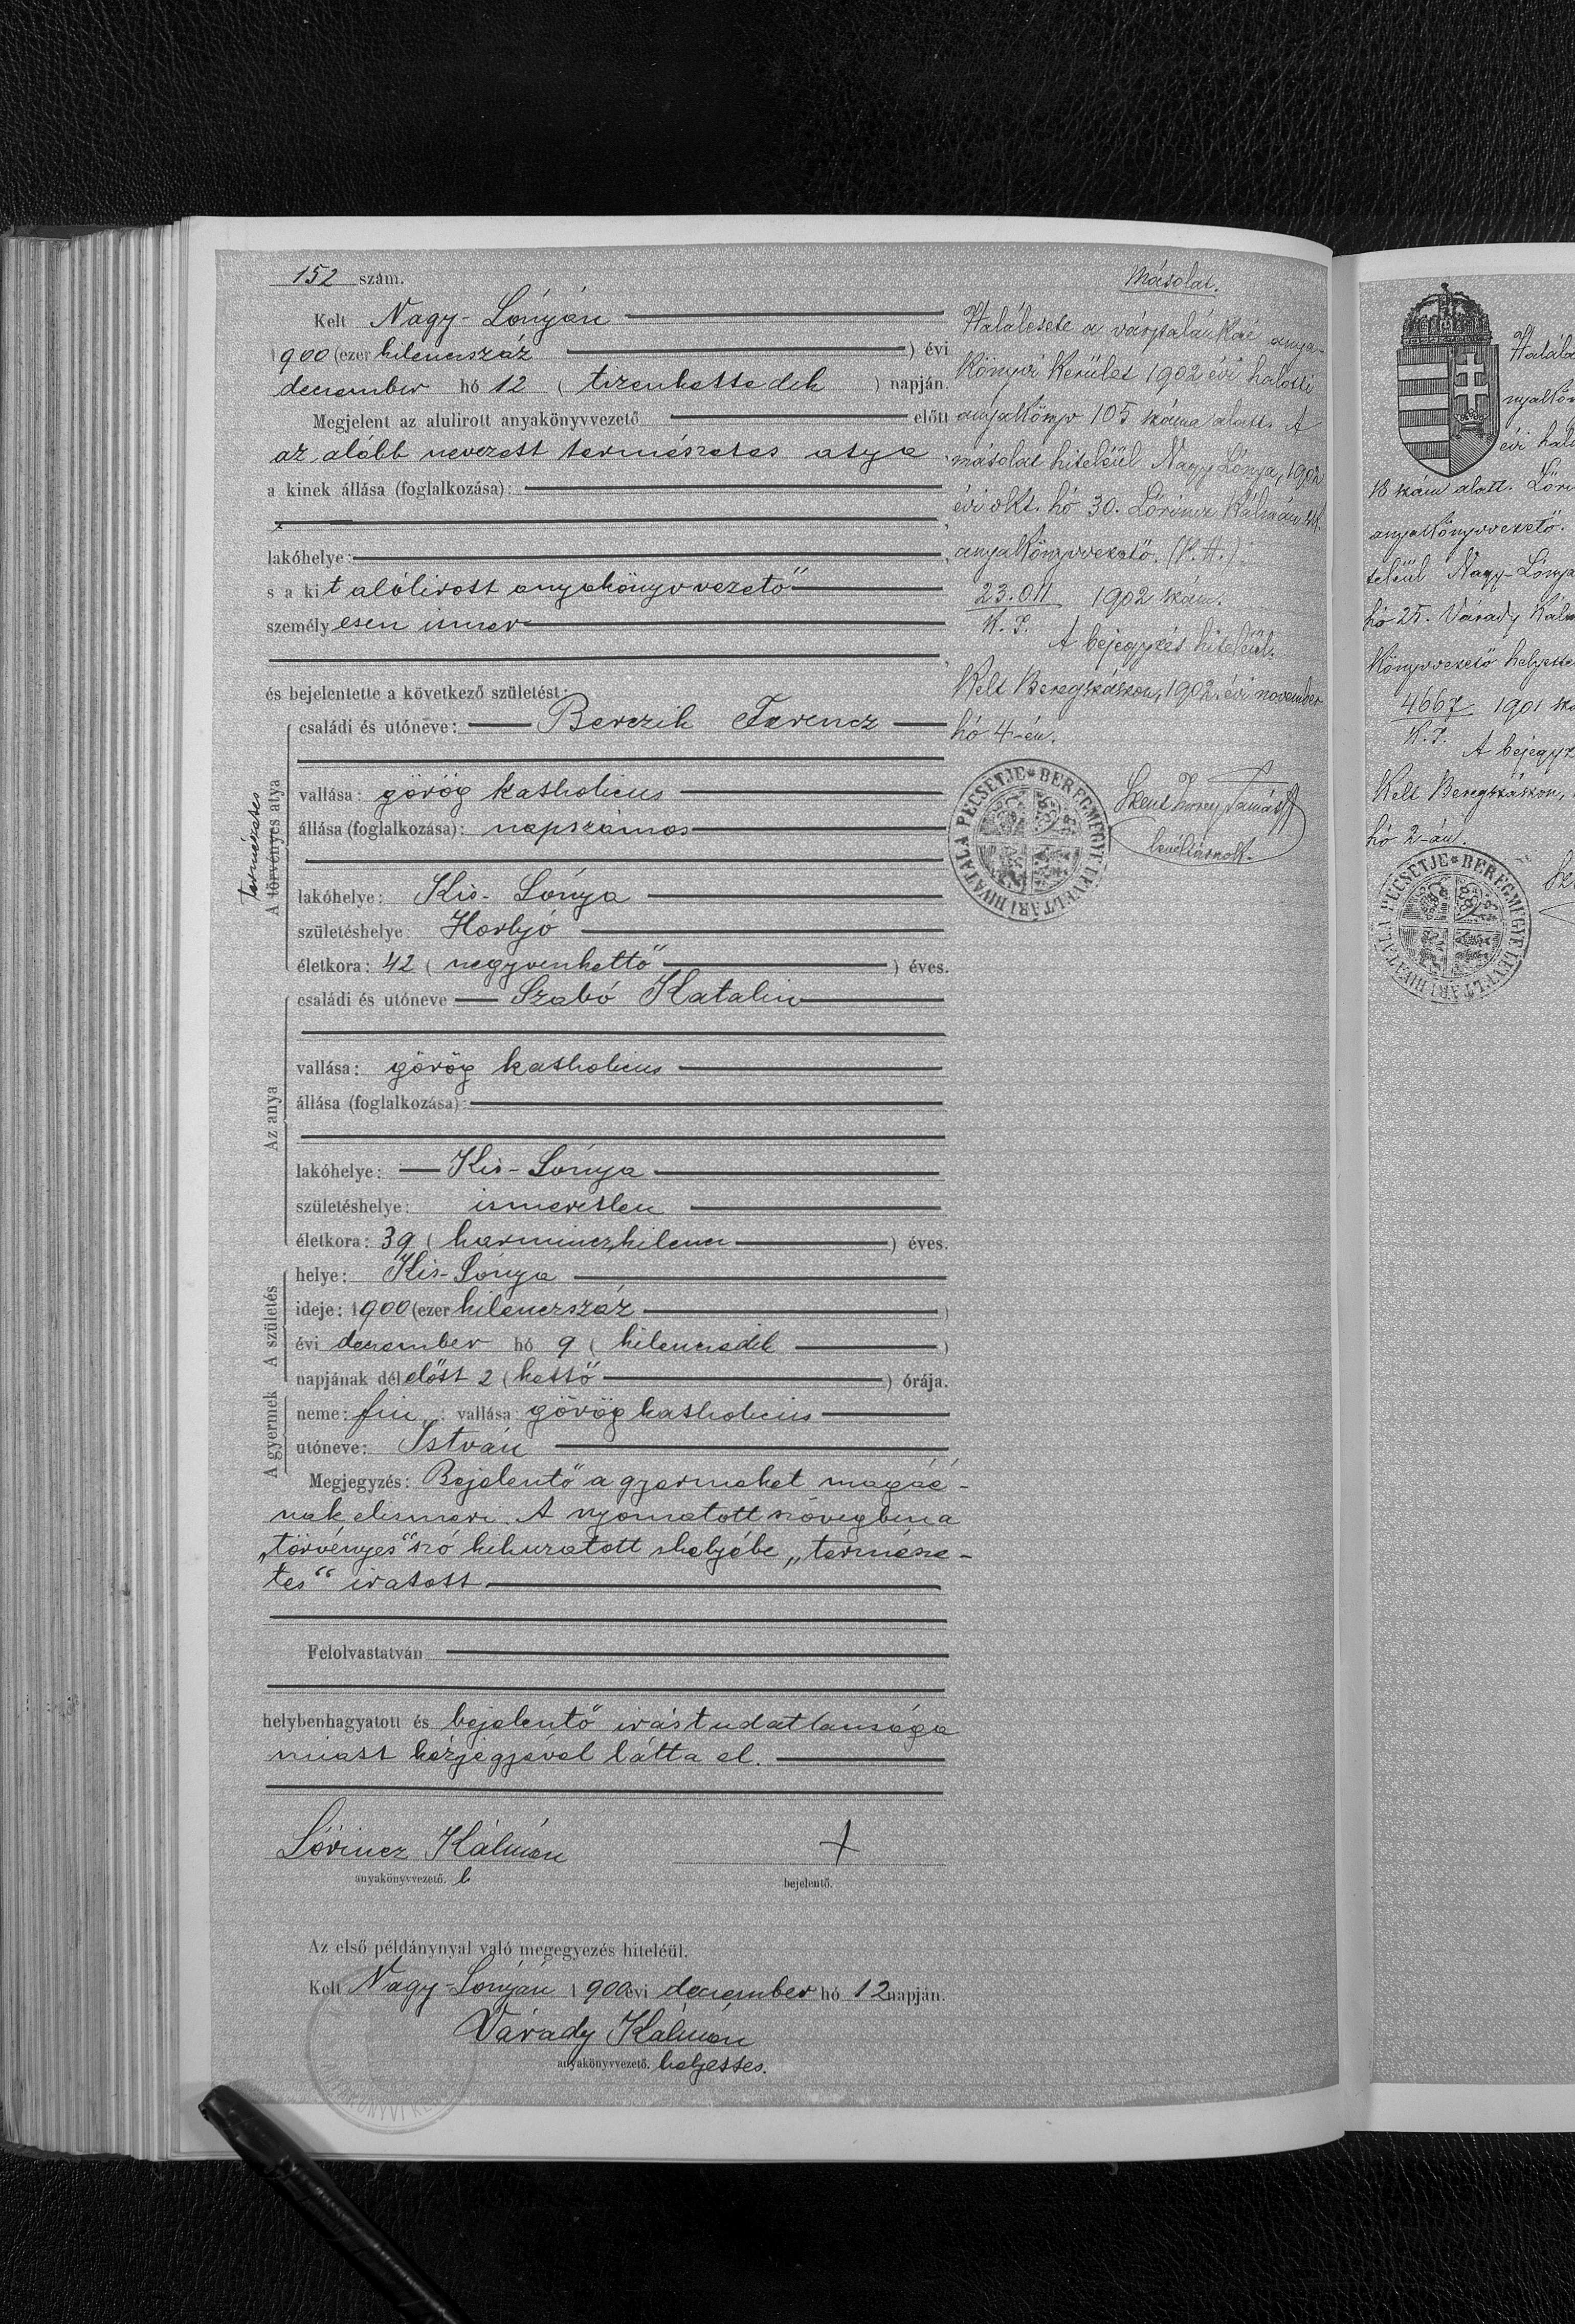 152 szám.
Kelt Nagy-Lónyán
1900 (ezer kilenczszáz ) évi
deczember hó 12 ( tizenkettedik ) napján.
Megjelent az alulirott anyakönyvvezető előtt
az alább nevezett természetes atya
a kinek állása (foglalkozása):
lakóhelye:
s a kit alólirott anyakönyvvezető
személyesen ismer
és bejelentette a következő születést:
természetes
A törvényes atya
családi és utóneve: Berczik Ferencz
vallása: görög katholicus
állása (foglalkozása): napszámos
lakóhelye: Kis-Lónya
születéshelye: Horlyó
életkora: 42 ( negyvenkettő ) éves.
Az anya
családi és utóneve Szabó Katalin
vallása: görög katholicus
állása (foglalkozása):
lakóhelye: Kis-Lónya
születéshelye: ismeretlen
életkora: 39 ( harminczkilencz ) éves.
A születés
helye: Kis-Lónya
ideje: 1900 (ezer kilenczszáz )
évi deczember hó 9 ( kilenczedik )
napjának délelőtt 2 ( kettő ) órája.
A gyermek
neme: fiu ; vallása: görög katholicus
utóneve: István
Megjegyzés: Bejelentő a gyermeket magáé-
nak elismeri. A nyomatott szövegben a
„törvényes" szó kihuzatott s helyébe „természe-
tes" iratott
Felolvastatván
helybenhagyatott és bejelentő irástudatlansága
miatt kézjegyével látta el.
Lőrincz Kálmán +
anyakönyvvezető. h bejelentő.
Az első példánynyal való megegyezés hiteléül.
Kelt Nagy-Lónyán 1900 évi deczember hó 12 napján.
Várady Kálmán
anyakönyvvezető. helyettes.
Másolat.
Haláleste a várpalánkai anya-
könyvi kerület 1902 évi halotti
anyakönyv 105 száma alatt. A
másolat hiteléül Nagy Lónya, 1902
évi okt. hó 30. Lőrincz Kálmán s.k.
anyakönyvvezető. (P. H.)
23.011 1902 szám.
K. I.
A bejegyzés hiteléül.
Kelt Beregszászon, 1902. évi november
hó 4-én.
BEREGMEGYE LEVÉLTÁRI HIVATALA PECSÉTJE
Tamás
levéltárnok.
Halále
nyakön
évi hal
18 szám alatt. Lőri
anyakönyvvezető.
teléül Nagy-Lónya
hó 25. Várady Kálm
könyvvezető helyette
4667 1901 szá
K. I.
A bejegyz
Kelt Beregszászon,
hó 2-án.
BEREGMEGYE LEVÉLTÁRI HIVATALA PECSÉTJE
Sz